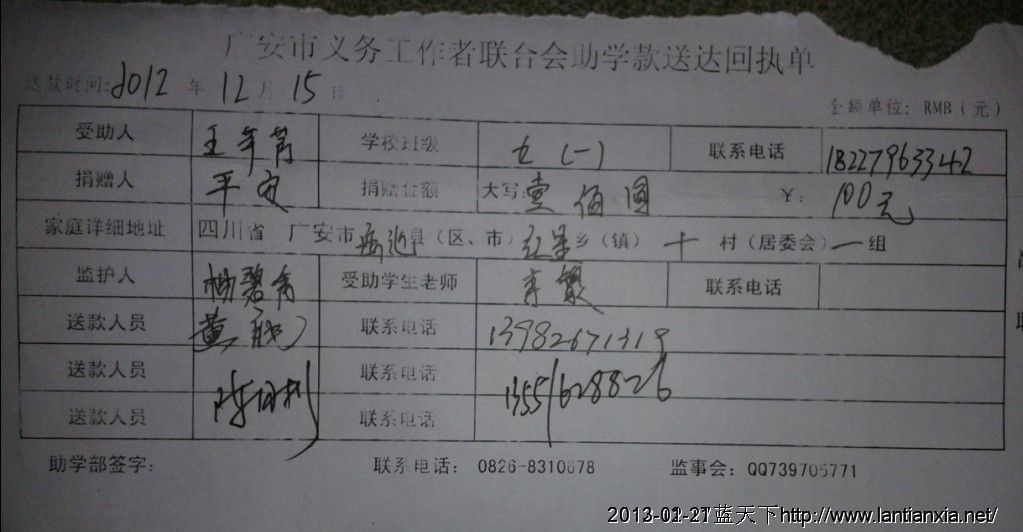 广安市义务工作者联合会助学款送达回执单
送款时间:2012 年 12 月 15 日
金额单位: RMB（元）
受助人 王 学校班级 七 (一) 联系电话 18227963342
捐赠人 平安 捐赠金额 大写:壹佰圆 ¥: 100元
家庭详细地址 四川省 广安市 县（区、市） 乡（镇） 十 村（居委会）一组
监护人 杨碧 受助学生老师 李 联系电话
送款人员 黄 联系电话 13982671319
送款人员 联系电话 13551628826
送款人员 陈 联系电话
助学部签字: 联系电话: 0826-8310678 监事会: QQ739705771
蓝天下http://www.lantianxia.net/